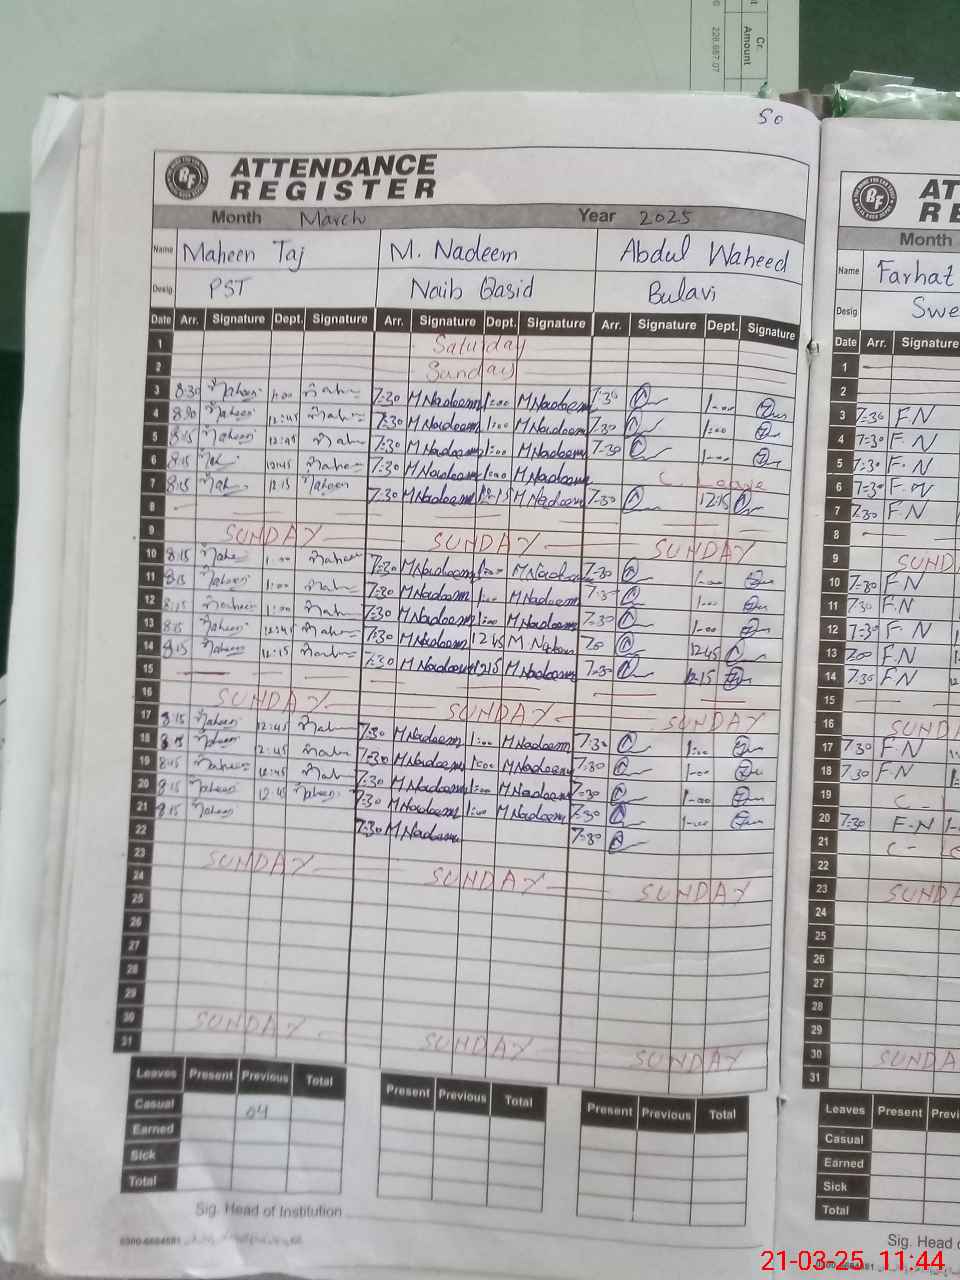 Cr.
Amount
228,687.07
50
ATTENDANCE
REGISTER
Month March Year 2025
Name Maheen Taj M. Nadeem Abdul Waheed
Desig. PST Naib Qasid Bulavi
Date Arr. Signature Dept. Signature Arr. Signature Dept. Signature Arr. Signature Dept. Signature
1 Saturday
2 Sunday
3 8:30 Maheen 1:00 7:30 M Nadeem 1:00 M Nadeem 7:30 1:00
4 8:30 Maheen 12:45 7:30 M Nadeem 1:00 M Nadeem 7:30 1:00
5 8:15 Maheen 12:45 7:30 M Nadeem 1:00 M Nadeem 7:30 1:00
6 8:15 12:45 Maheen 7:30 M Nadeem 1:00 M Nadeem C. Leave
7 8:15 12:15 Maheen 7:30 M Nadeem 12:15 M Nadeem 7:30 12:15
8
9 SUNDAY SUNDAY SUNDAY
10 8:15 1:00 Maheen 7:30 M Nadeem 1:00 M Nadeem 7:30 1:00
11 8:15 Maheen 1:00 7:30 M Nadeem 1:00 M Nadeem 7:30 1:00
12 8:15 Maheen 1:00 7:30 M Nadeem 1:00 M Nadeem 7:30 1:00
13 8:15 Maheen 12:45 7:30 M Nadeem 12 45 M Nadeem 7:00 12:45
14 8:15 Maheen 12:15 Maheen 7:30 M Nadeem 12:15 M Nadeem 7:30 12:15
15
16 SUNDAY SUNDAY SUNDAY
17 8:15 Maheen 12:45 7:30 M Nadeem 1:00 M Nadeem 7:30 1:00
18 8:15 Maheen 12:45 7:30 M Nadeem 1:00 M Nadeem 7:30 1:00
19 8:15 Maheen 12:45 7:30 M Nadeem 1:00 M Nadeem 7:30 1:00
20 8:15 Maheen 12:45 Maheen 7:30 M Nadeem 1:00 M Nadeem 7:30 1:00
21 8:15 Maheen 7:30 M Nadeem 7:30
22
23 SUNDAY SUNDAY SUNDAY
24
25
26
27
28
29
30 SUNDAY SUNDAY SUNDAY
31
Leaves Present Previous Total Present Previous Total Present Previous Total
Casual 04
Earned
Sick
Total
Sig. Head of Institution
0300-6684681
AT
RE
Month
Name Farhat
Desig Swe
Date Arr. Signature
1
2
3 7:30 F.N
4 7:30 F.N
5 7:30 F.N
6 7:30 F.N
7 7:30 F.N
8
9 SUND
10 7:30 F.N
11 7:30 F.N
12 7:30 F.N
13 7:00 F.N
14 7:30 F.N
15
16 SUND
17 7:30 F.N
18 7:30 F.N
19 C-
20 7:30 F.N
21 C-
22
23 SUNDA
24
25
26
27
28
29
30 SUNDA
31
Leaves Present Previ
Casual
Earned
Sick
Total
Sig. Head
21-03-25 11:44